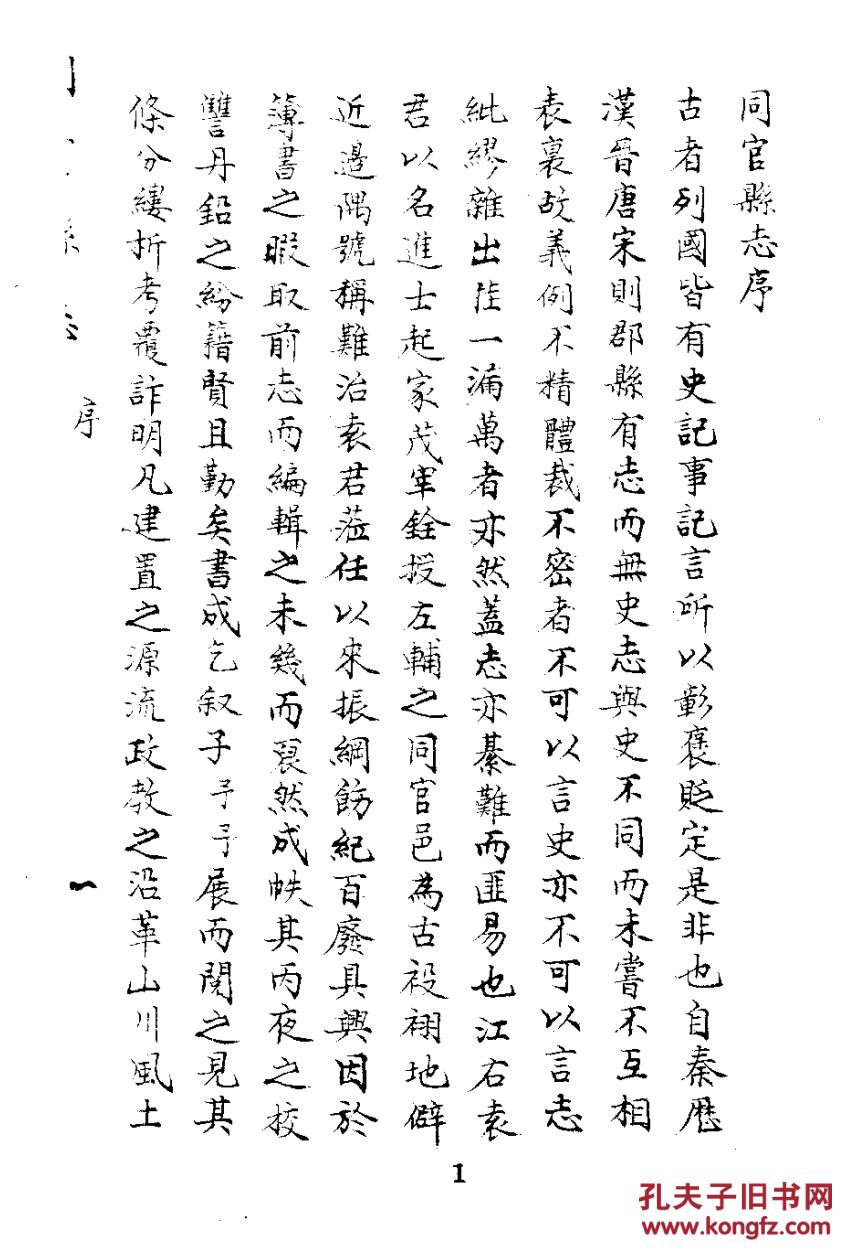 同官縣志序
古者列國皆有史記事記言所以彰褒貶定是非也自秦歷
漢晉唐宋則郡縣有志而無史志與史不同而未嘗不互相
表裏故義例不精體裁不密者不可以言史亦不可以言志
紕繆雜出陸一漏萬者亦然蓋志亦綦難而匪易也江右袁
君以名進士起家茂宰銓授左輔之同官邑為古祋祤地僻
近邊隅號稱難治袁君蒞任以來振綱飭紀百廢具興因於
簿書之暇取前志而編輯之未幾而裒然成帙其丙夜之校
讐丹鉛之紛籍賢且勤矣書成乞叙于予予展而閱之見其
條分縷折考覆詐明凡建置之源流政教之沿革山川風土
序
一
1
孔夫子旧书网
www.kongfz.com